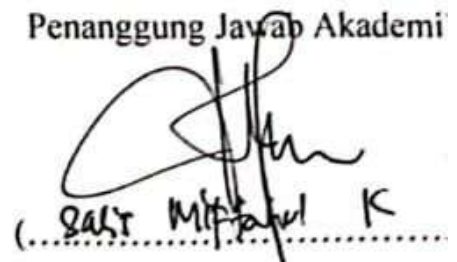 Penanggung Jawab Akademi
( Miftahul K